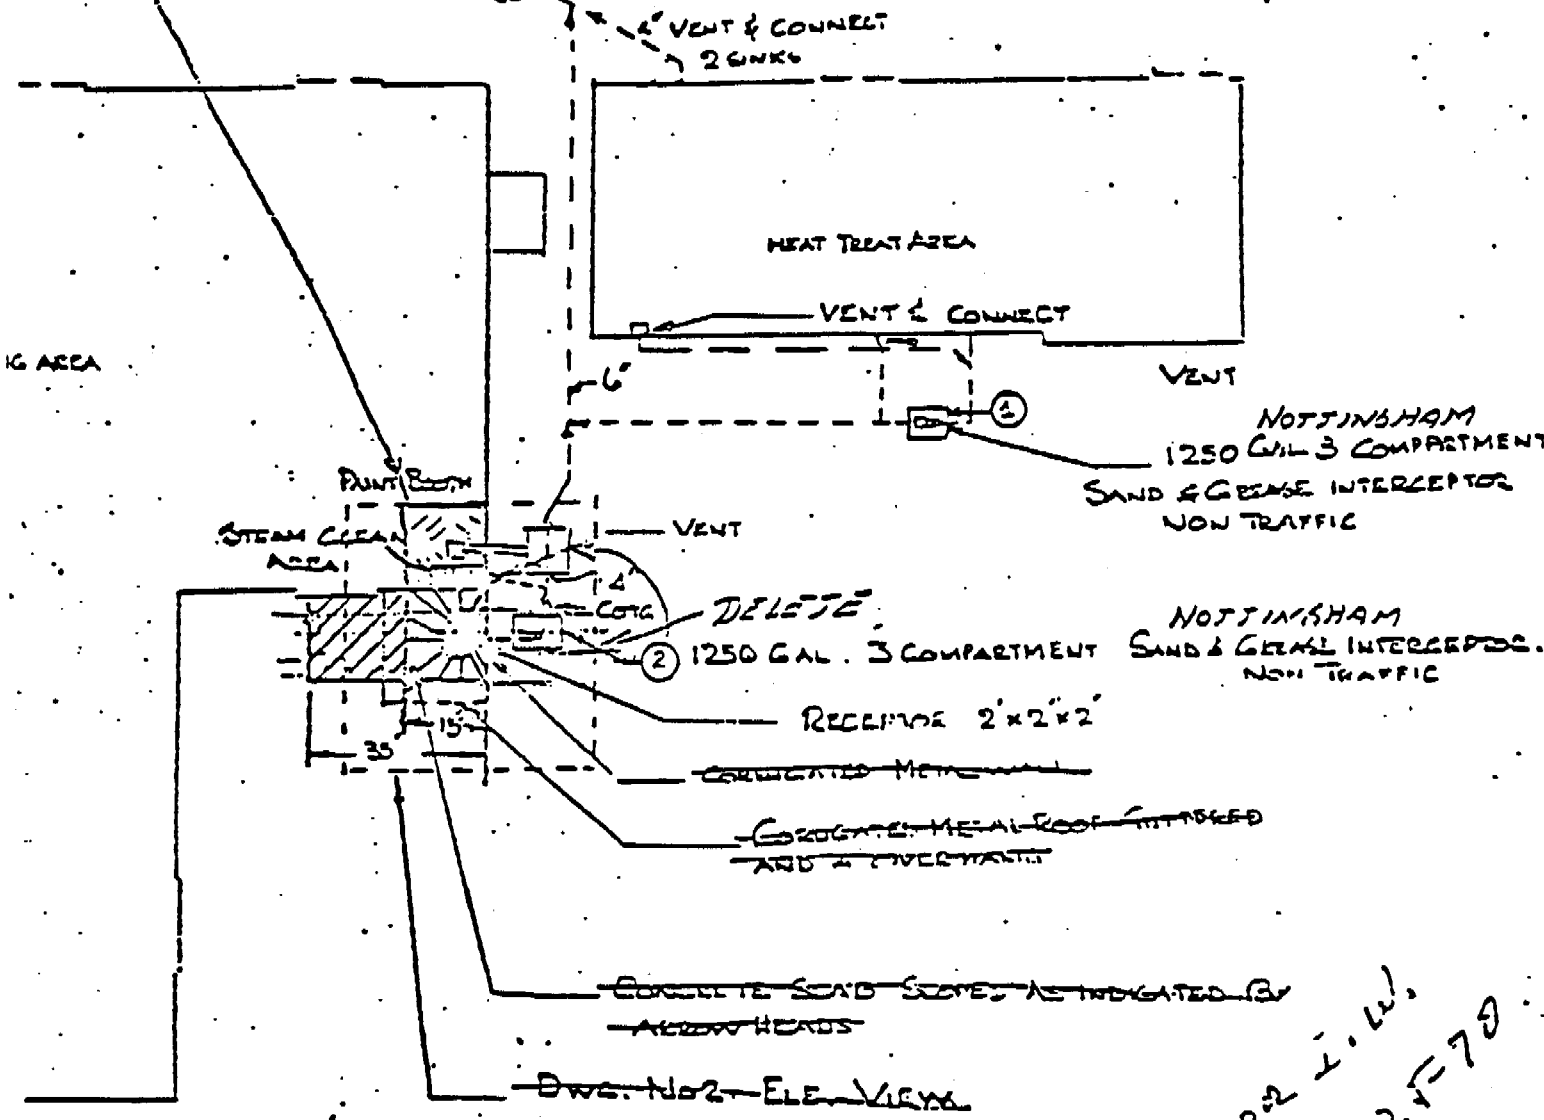 4" VENT & CONNECT
2 SINKS
HEAT TREAT AREA
VENT & CONNECT
AREA
6"
VENT
1
NOTTINGHAM
1250 GAL 3 COMPARTMENT
SAND & GREASE INTERCEPTOR
NON TRAFFIC
PAINT BOOTH
STEAM CLEAN
AREA
VENT
4"
COTG
DELETE
NOTTINGHAM
2 1250 GAL. 3 COMPARTMENT SAND & GREASE INTERCEPTOR.
NON TRAFFIC
2' x 2' x 2'
15'
35
CORRUGATED METAL WALL
METAL ROOF
AND
CONCRETE SLAB SLOPES AS INDICATED BY
ARROW HEADS
DWG. NO 2 - ELE. VIEW